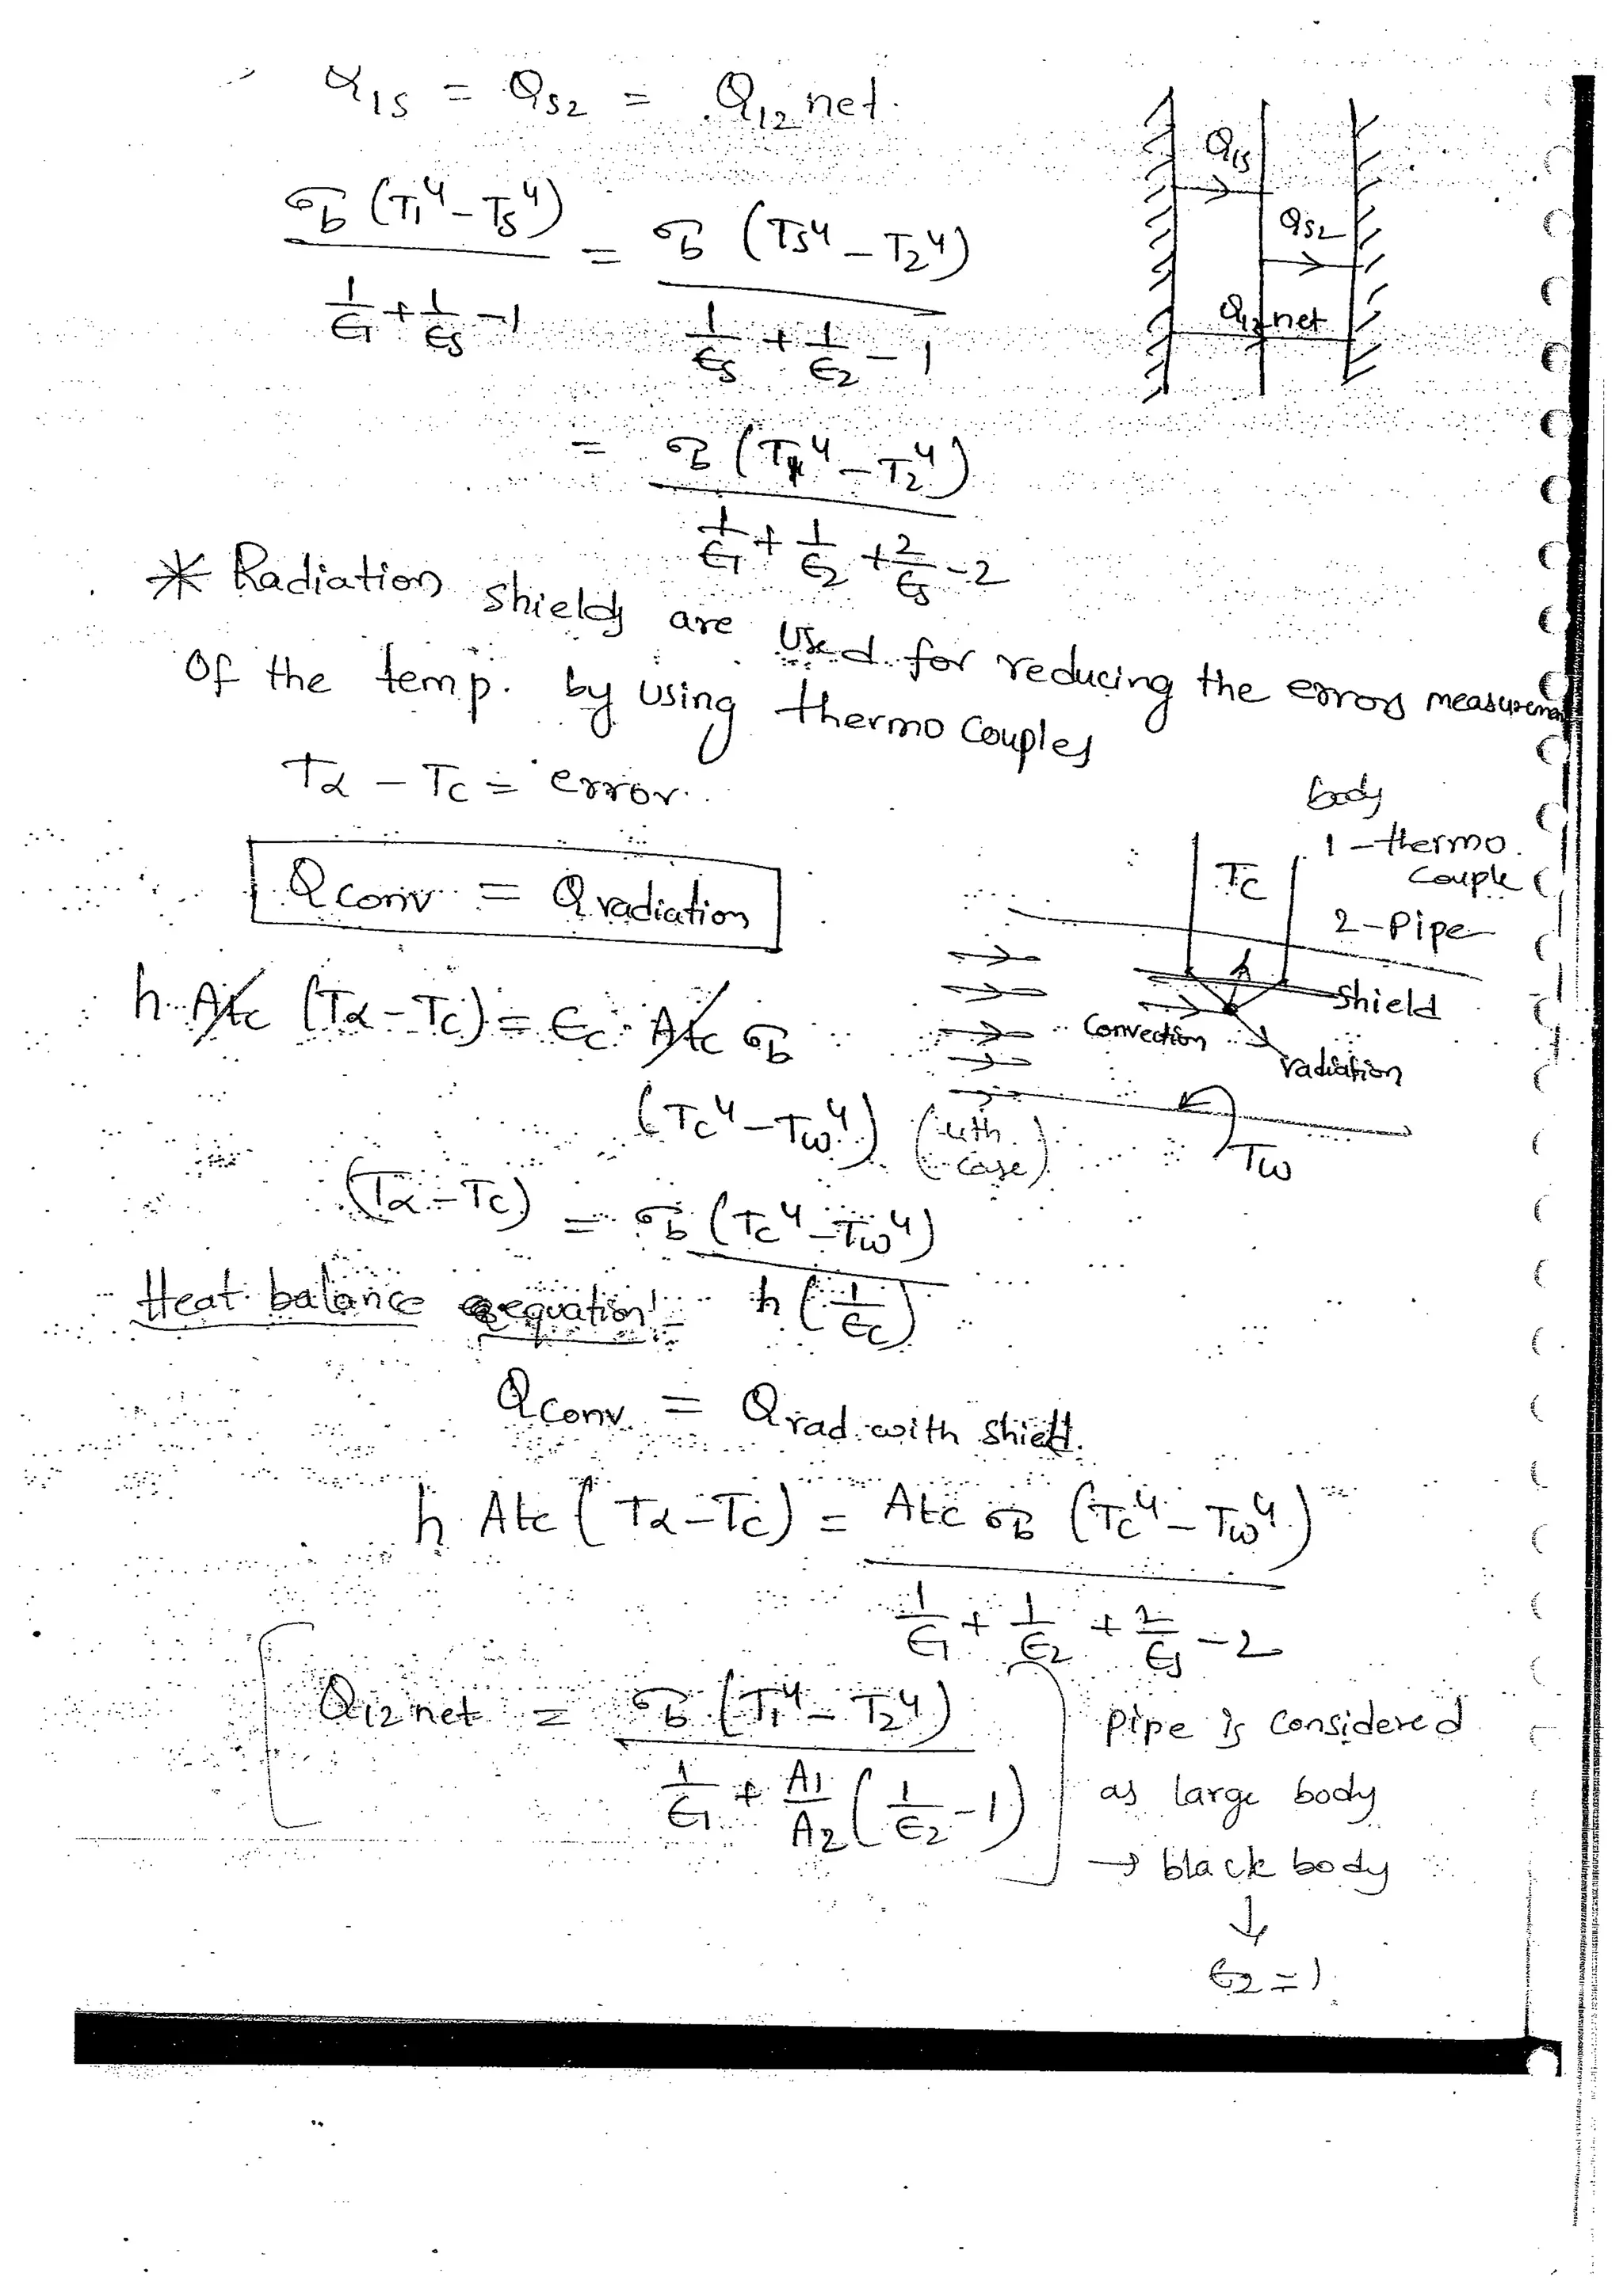 Q1s = Qs2 = Q12 net.
σb (T1⁴ - Ts⁴) / (1/ϵ1 + 1/ϵs - 1) = σb (Ts⁴ - T2⁴) / (1/ϵs + 1/ϵ2 - 1)
= σb (T1⁴ - T2⁴) / (1/ϵ1 + 1/ϵ2 + 2/ϵs - 2)
Q1s
Qs2
Q12 net
* Radiation shields are used for reducing the errors measurement
of the temp. by using thermo couples
Tα - Tc = error.
Q conv = Q radiation
h Atc (Tα - Tc) = ϵc Atc σb
(Tc⁴ - Tw⁴) (4th case)
body
1 - thermo couple
2 - Pipe
Tc
shield
convection
radiation
Tw
(Tα - Tc) = σb (Tc⁴ - Tw⁴) / h (1/ϵc)
Heat balance equation:-
Q conv. = Q rad. with shield.
h Atc (Tα - Tc) = Atc σb (Tc⁴ - Tw⁴) / (1/ϵ1 + 1/ϵ2 + 2/ϵs - 2)
[Q12 net = σb (T1⁴ - T2⁴) / (1/ϵ1 + A1/A2 (1/ϵ2 - 1))]
pipe is considered
as large body
→ black body
↓
ϵ2 = 1